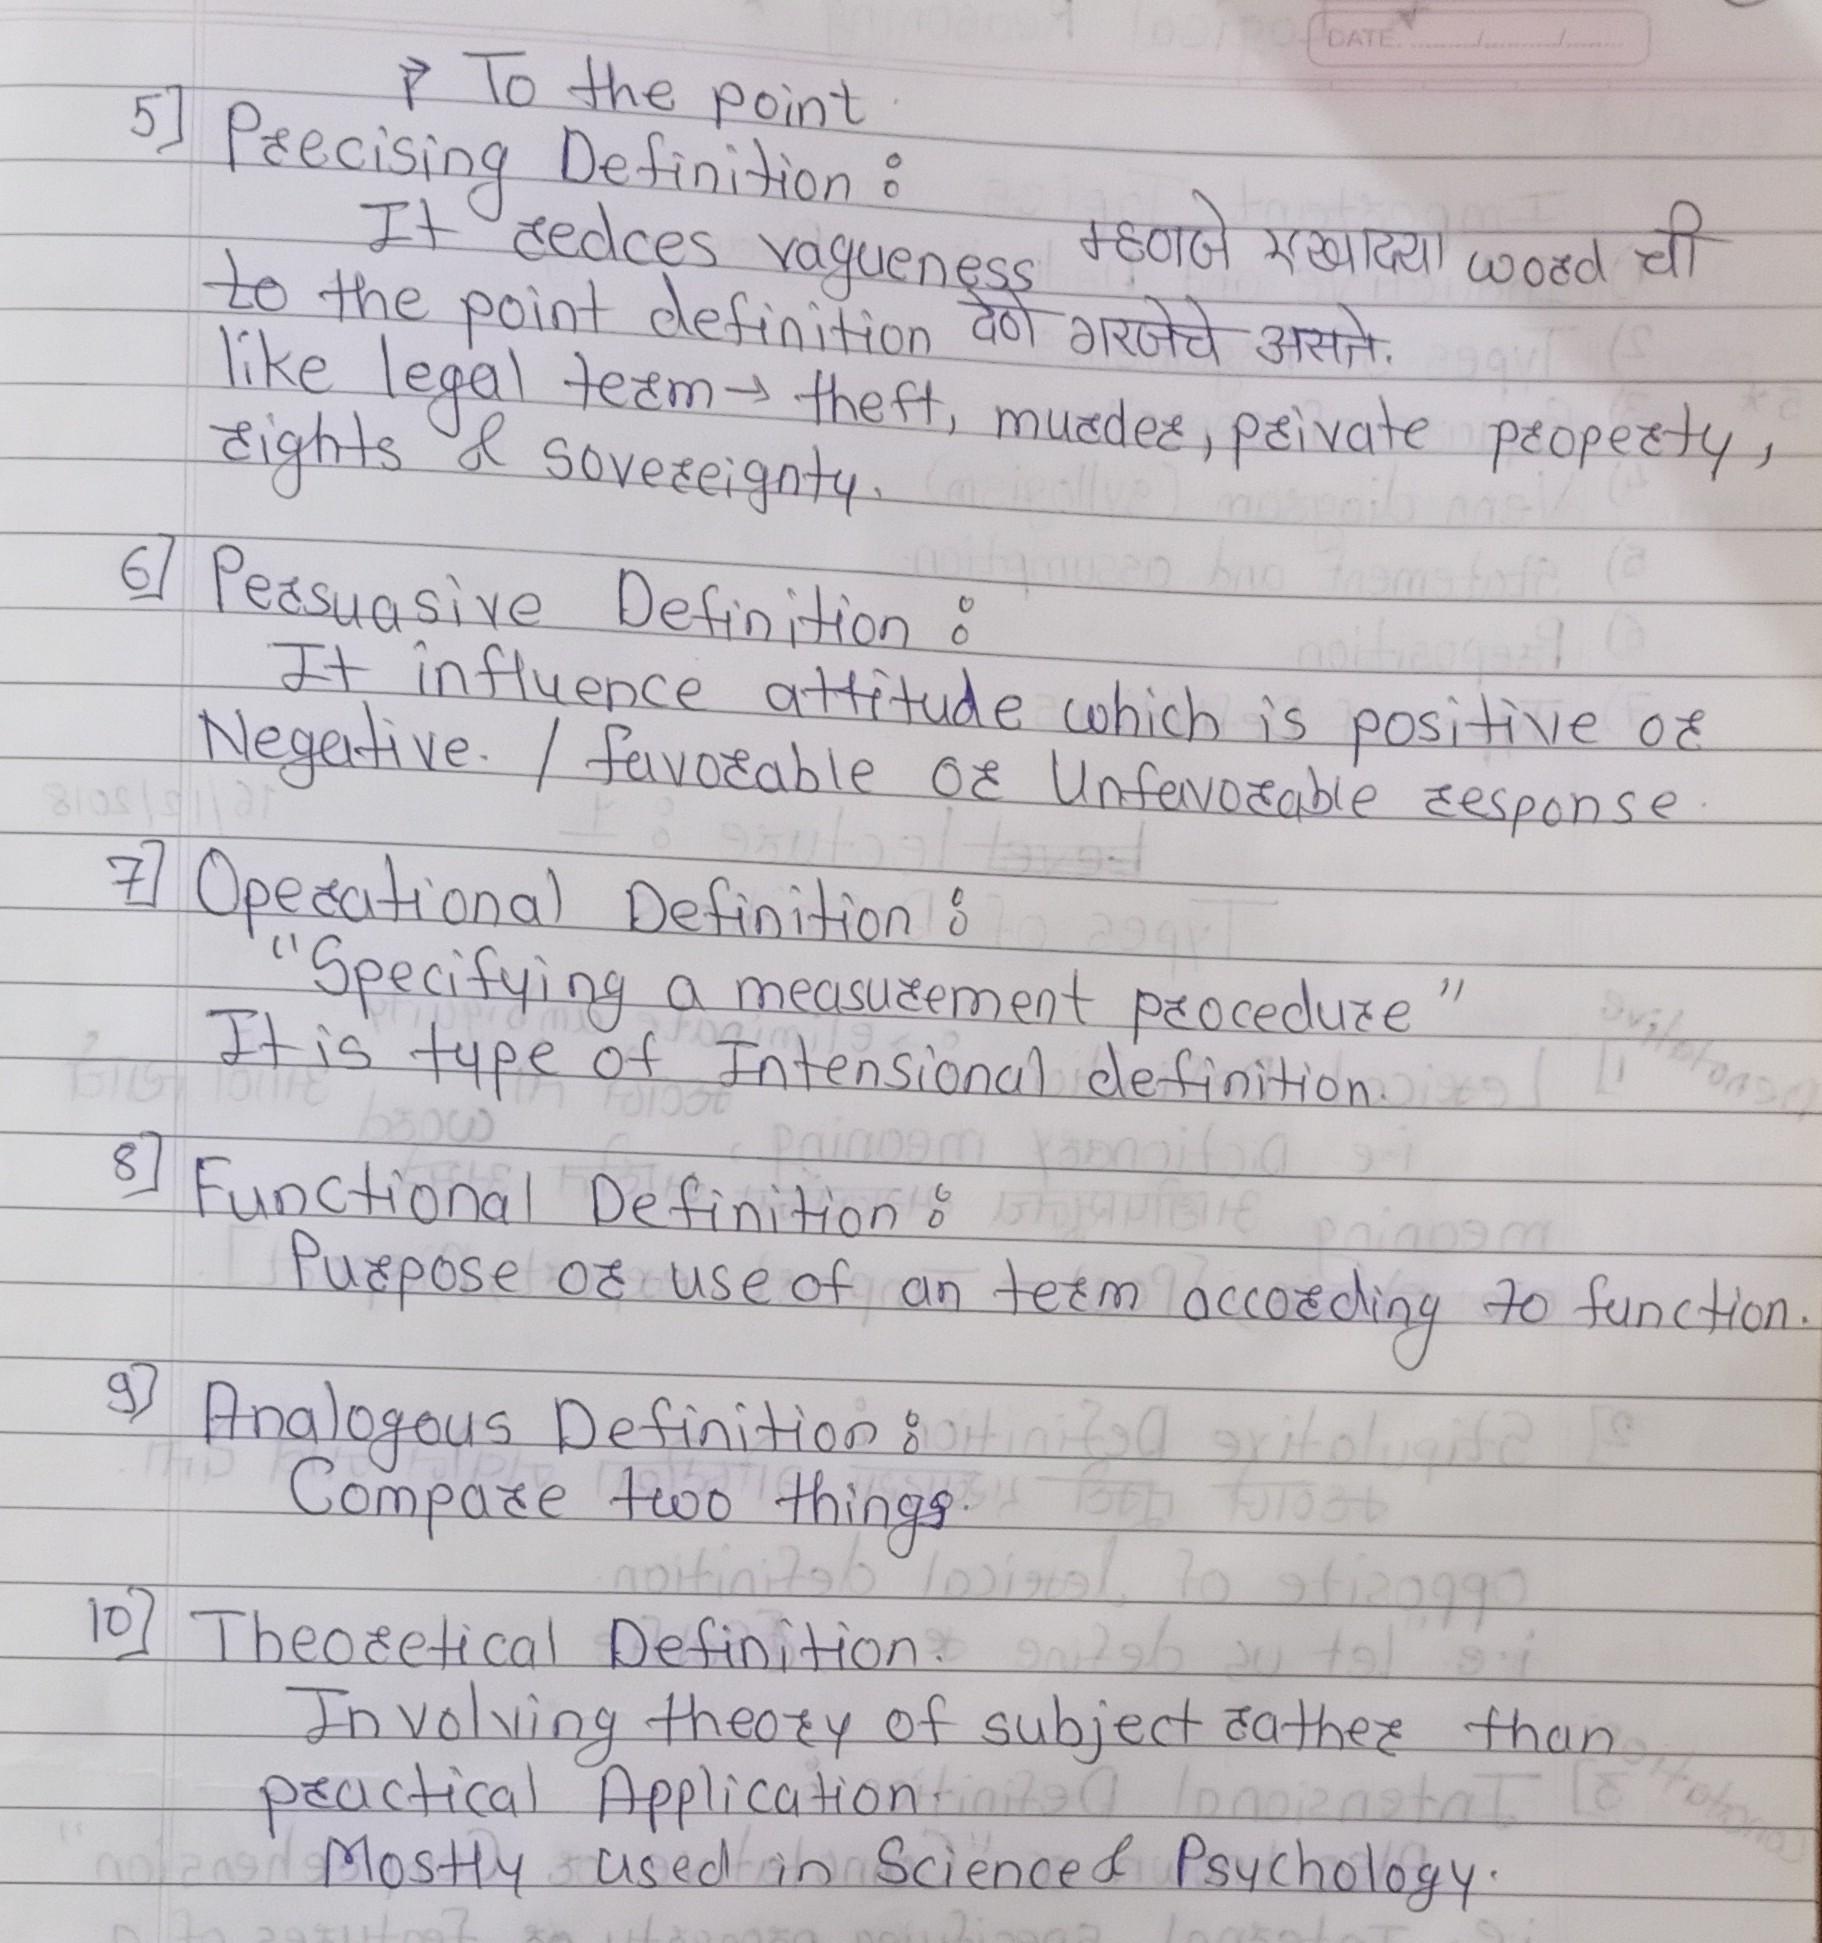 DATE
→ To the point
5] Precising Definition :
It redces vagueness म्हणजे एखाद्या word ची
to the point definition देणे गरजेचे असते.
like legal term → theft, murder, private property,
rights & sovereignty.
6] Persuasive Definition :
It influence attitude which is positive or
Negative. / favorable or Unfavorable response.
7] Operational Definition :
"Specifying a measurement procedure"
It is type of Intensional definition.
8] Functional Definition :
Purpose or use of an term according to function.
9] Analogous Definition :
Compare two things.
10] Theoretical Definition:
Involving theory of subject rather than
practical Application.
Mostly used in Science & Psychology.